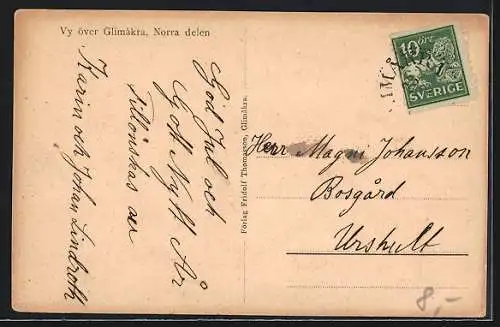 Vy över Glimåkra, Norra delen
God Jul och
Gott Nytt År
tillönskas av
Karin och Johan Lindroth
Förlag Fridolf Thomasson, Glimåkra.
10 ÖRE
SVERIGE
Herr Magni Johansson
Bosgård
Urshult
8,-